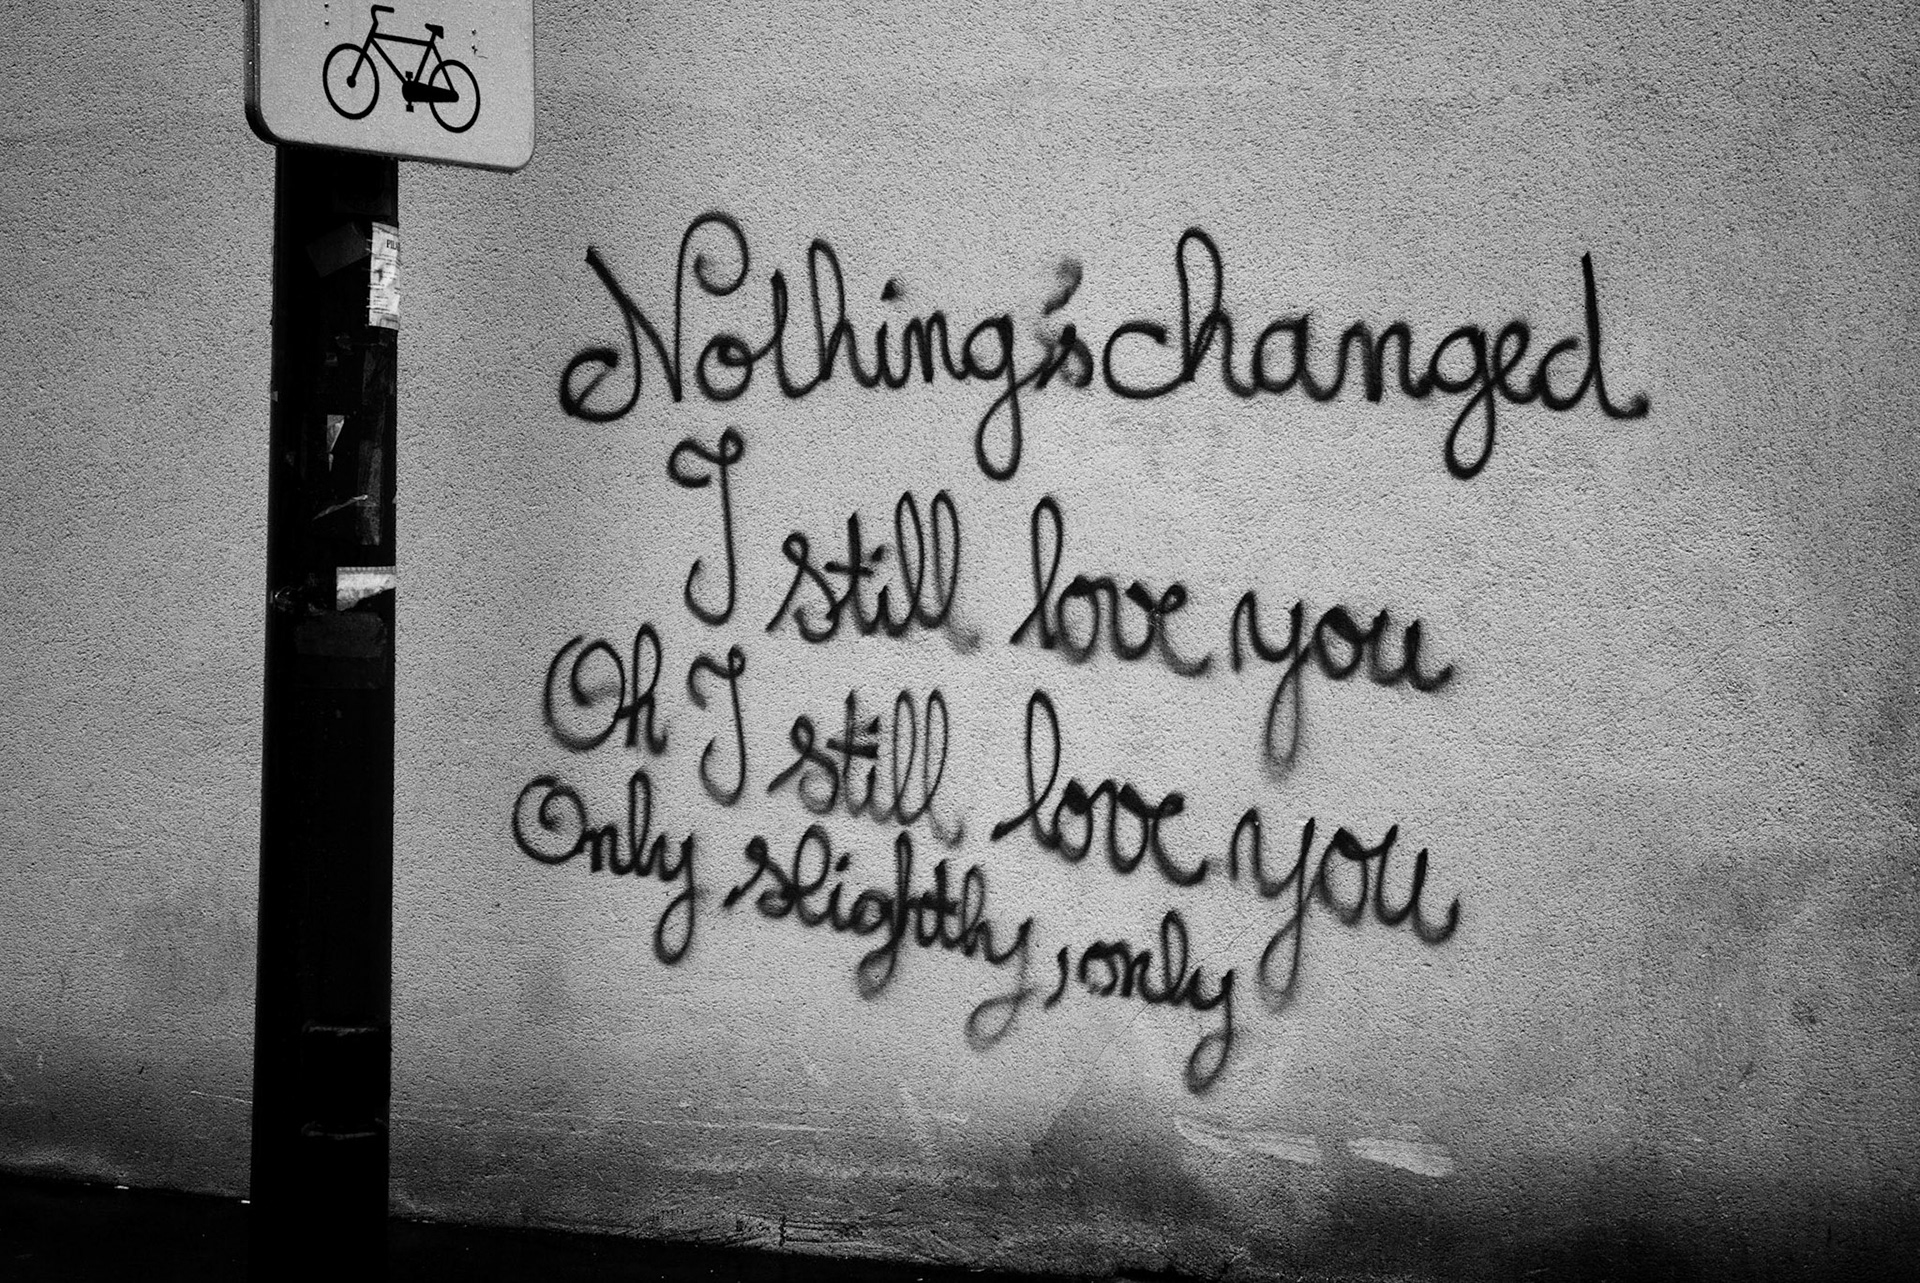 Nothing's changed
I still love you
Oh I still love you
Only slightly, only